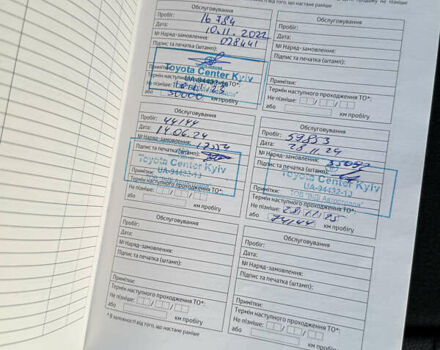 Обслуговування
Пробіг: 16 784
Дата: 10.11.2022
№ Наряд-замовлення: 028441
Підпис та печатка (штамп):
Toyota Center Kyiv
UA-94432-12
Примітки:
Термін наступного проходження ТО*:
Не пізніше:
або 30000 км пробігу
Обслуговування
Пробіг:
Дата:
№ Наряд-замовлення:
Підпис та печатка (штамп):
Примітки:
Термін наступного проходження ТО*:
Не пізніше:
або км пробігу
Обслуговування
Пробіг: 44144
Дата: 14.06.24
№ Наряд-замовлення:
Підпис та печатка (штамп):
Toyota Center Kyiv
UA-94432-12
Примітки:
Термін наступного проходження ТО*:
Не пізніше:
або км пробігу
Обслуговування
Пробіг:
Дата: 28.11.24
№ Наряд-замовлення:
Підпис та печатка (штамп):
Toyota Center Kyiv
UA-94432-12
Примітки:
Термін наступного проходження ТО*:
Не пізніше: 28.11.25
або км пробігу
Обслуговування
Пробіг:
Дата:
№ Наряд-замовлення:
Підпис та печатка (штамп):
Примітки:
Термін наступного проходження ТО*:
Не пізніше:
або км пробігу
* В залежності від того, що настане раніше
Обслуговування
Пробіг:
Дата:
№ Наряд-замовлення:
Підпис та печатка (штамп):
Примітки:
Термін наступного проходження ТО*:
Не пізніше:
або км пробігу